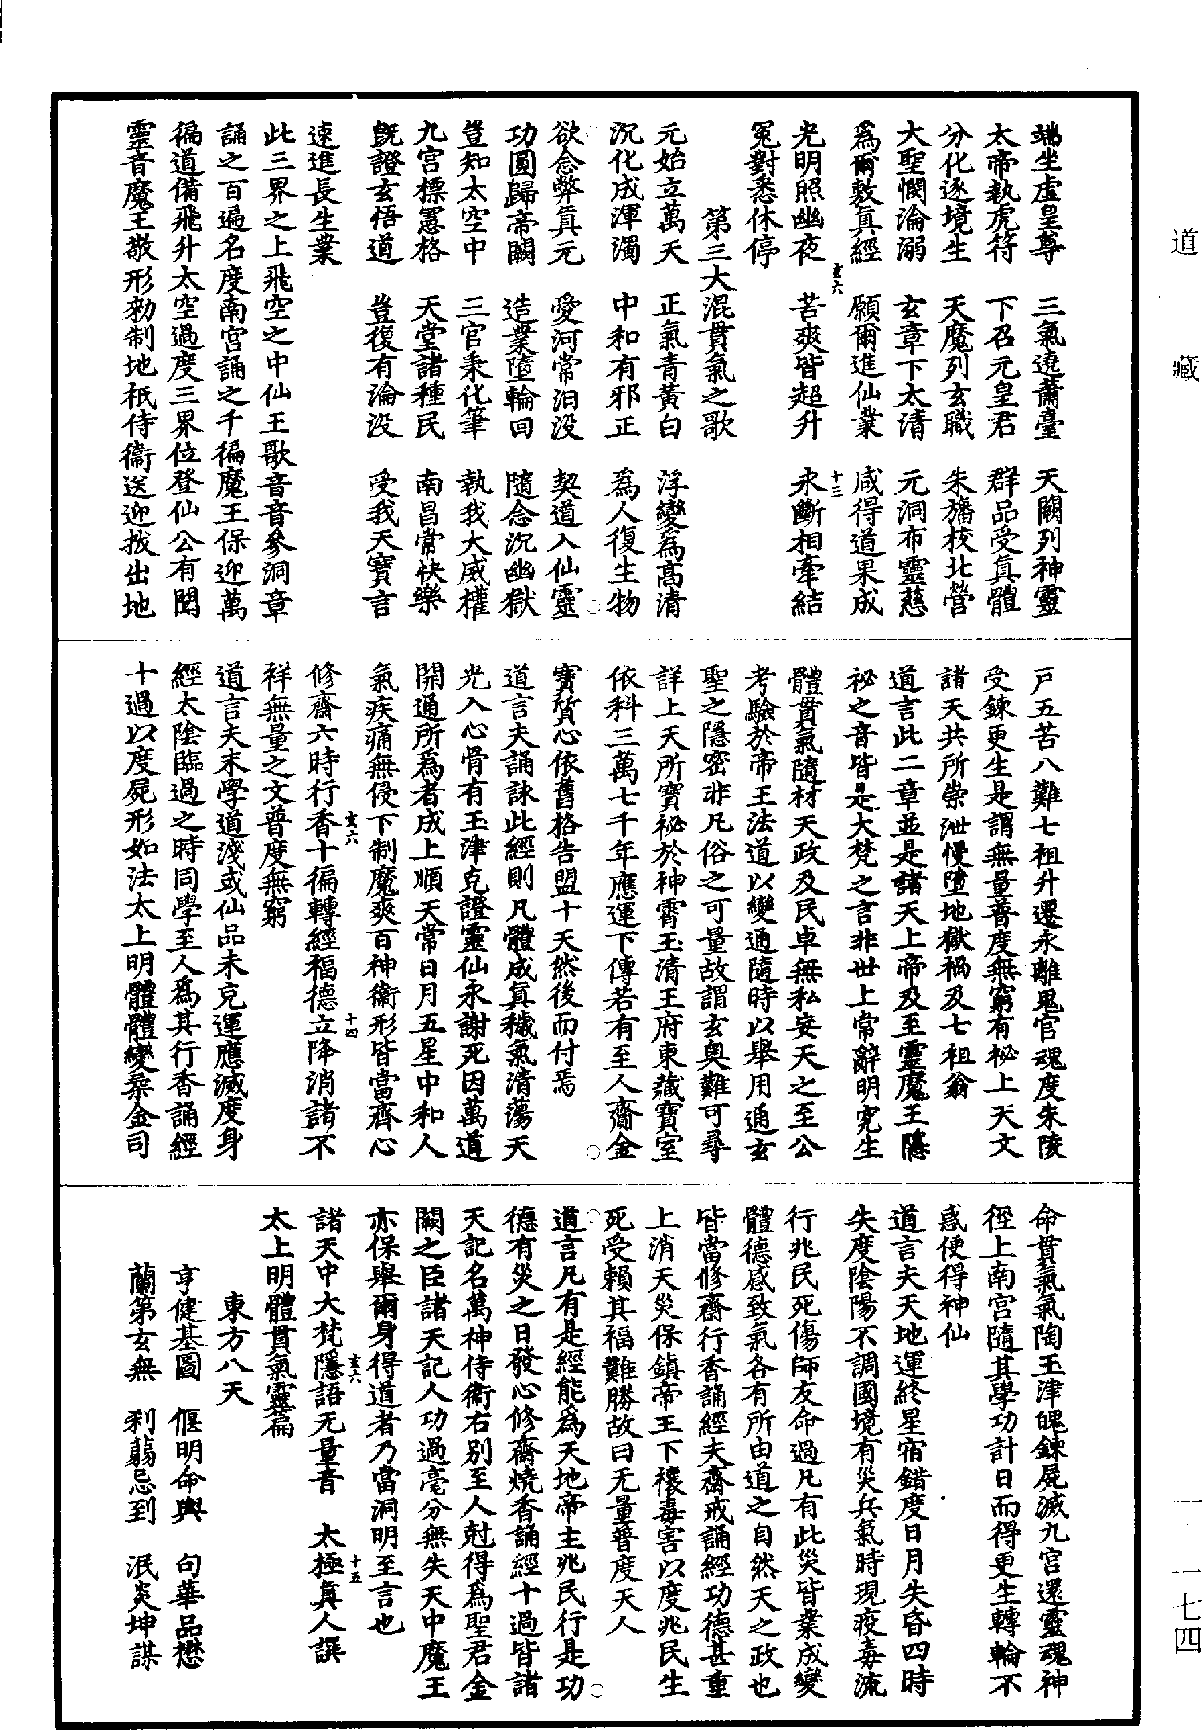 道藏
端坐虛皇尊　三氣遶蕭臺　天關列神靈
太帝執虎符　下召元皇君　群品受真體
分化逐境生　天魔列玄職　朱旛校北營
大聖憫淪溺　玄章下太清　元洞布靈慈
爲爾敷真經　願爾進仙業　咸得道果成
玄六　十三
光明照幽夜　苦爽皆超升　永斷相牽結
冤對悉休停
第三大混貫氣之歌
元始立萬天　正氣青黃白　浮變為高清
沉化成渾濁　中和有邪正　為人復生物
欲念弊真元　愛河常汨没　契道入仙靈
功圓歸帝闕　造業墮輪回　隨念沉幽獄
豈知太空中　三官秉化筆　執我大威權
九宮標憲格　天堂諸種民　南昌常快樂
既證玄悟道　豈復有淪没　受我天寶言
速進長生業
此三界之上飛空之中仙王歌音音參洞章
誦之百遍名度南宮誦之千徧魔王保迎萬
徧道備飛升太空過度三界位登仙公有聞
靈音魔王敬形勑制地祇侍衞送迎拔出地
戸五苦八難七祖升遷永離鬼官魂度朱陵
受鍊更生是謂無量普度無窮有祕上天文
諸天共所崇泄慢墮地獄禍及七祖翁
道言此二章並是諸天上帝及至靈魔王隱
祕之音皆是大梵之言非世上常辭明究生
體貫氣隨材天政及民卓無私妄天之至公
考驗於帝王法道以變通隨時以舉用通玄
聖之隱密非凡俗之可量故謂玄奥難可尋
詳上天所寶祕於神霄玉清王府東藏寶室
依科三萬七千年應運下傳若有至人齎金
寶質心依舊格告盟十天然後而付焉
道言夫誦詠此經則凡體成真穢氣清蕩天
光入心骨有玉津克證靈仙永謝死因萬道
開通所為者成上順天常日月五星中和人
氣疾痛無侵下制魔爽百神衛形皆當齊心
玄六　十四
修齋六時行香十徧轉經福德立降消諸不
祥無量之文普度無窮
道言夫末學道淺或仙品未克運應滅度身
經太陰臨過之時同學至人爲其行香誦經
十過以度屍形如法太上明體體變桑金司
命貫氣氣陶玉津魄鍊屍滅九宮還靈魂神
徑上南宮隨其學功計日而得更生轉輪不
惑便得神仙
道言夫天地運終星宿錯度日月失昏四時
失度陰陽不調國境有災兵氣時現疫毒流
行兆民死傷師友命過凡有此災皆業成變
體德感致氣各有所由道之自然天之政也
皆當修齋行香誦經夫齋戒誦經功德甚重
上消天災保鎮帝王下禳毒害以度兆民生
死受賴其福難勝故曰无量普度天人
道言凡有是經能為天地帝主兆民行是功
德有災之日發心修齋燒香誦經十過皆諸
天記名萬神侍衛右別至人尅得爲聖君金
闕之臣諸天記人功過毫分無失天中魔王
亦保舉爾身得道者乃當洞明至言也
玄六　十五
諸天中大梵隱語无量音　太極真人譔
太上明體貫氣靈篇
東方八天
亨健基圖　偃明命輿　句華品懋
蘭第玄無　刹鬺忌到　泯炎坤謀
一一七四